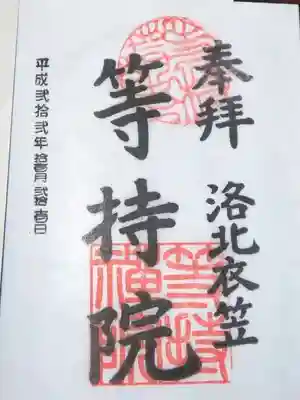 奉拝
洛北衣笠
等持院
平成弐拾弐年拾壱月弐拾吉日